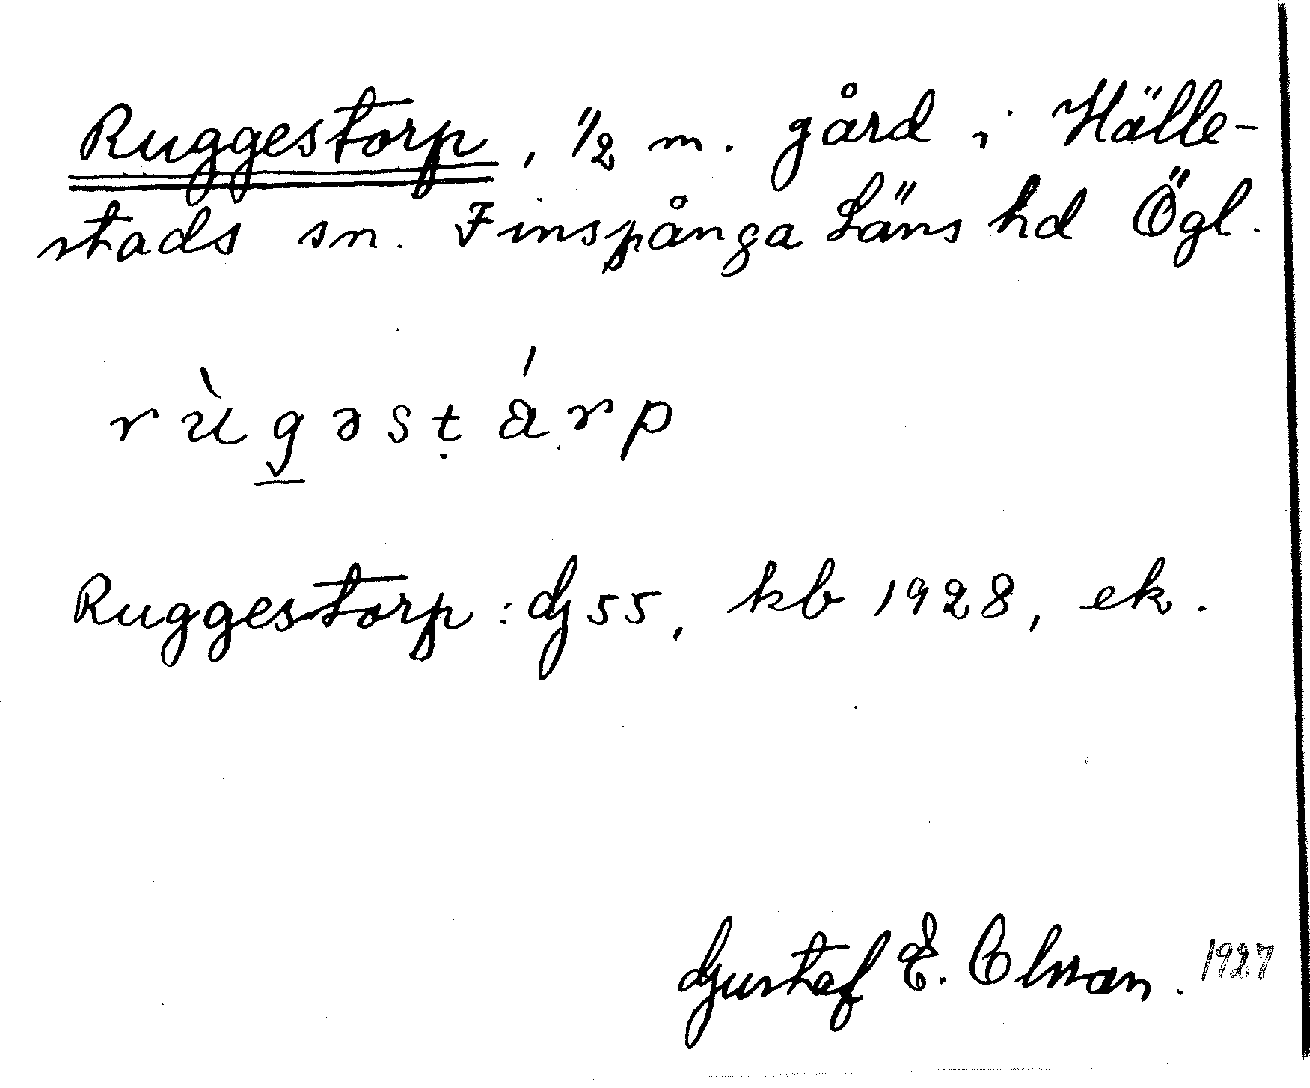 Ruggestorp, 1/2 m. gård i Hälle-
stads sn. Finspånga Läns hd Ögl.
rùgəstṭárp
Ruggestorp: Gj 55, kb 1928, ek.
Gustaf E. Olsson. 1927